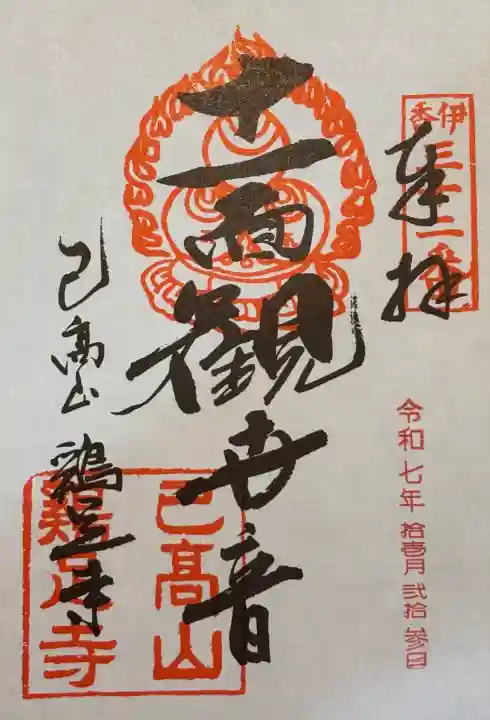 奉拝
伊香三十二番
令和七年 拾壱月 弐拾参日
十一面觀世音
己高山
己高山 鶏足寺
鶏足寺